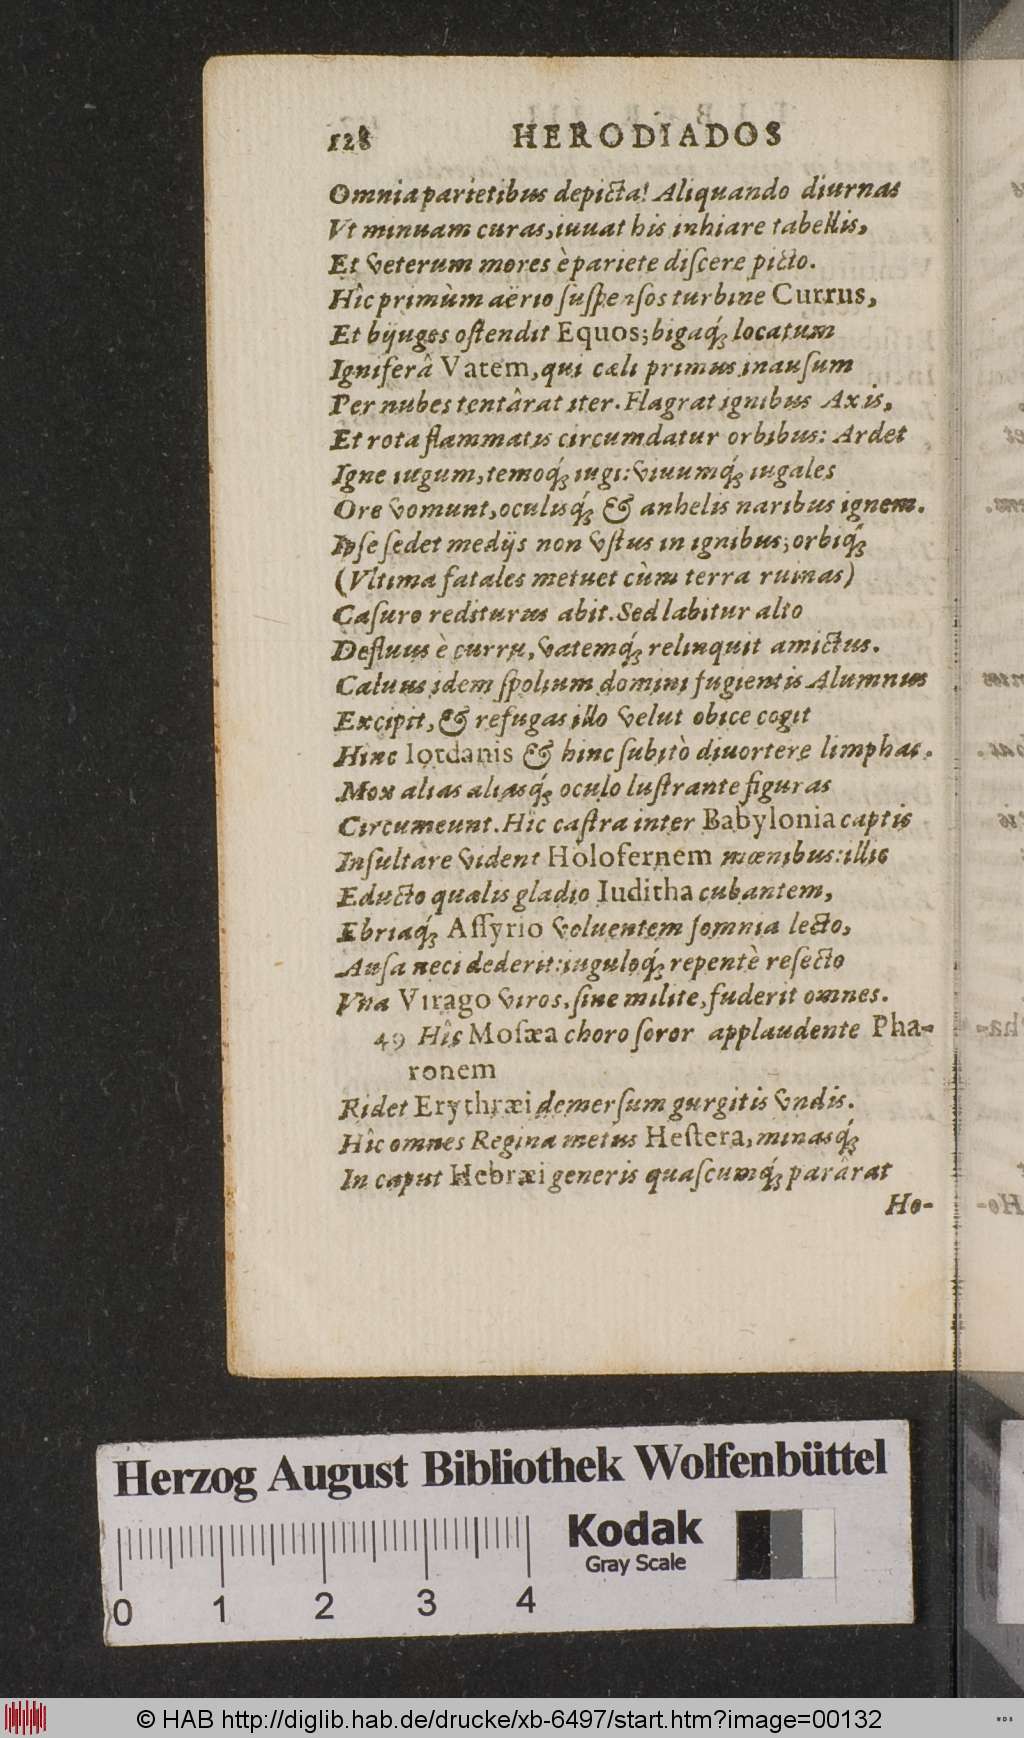 128 HERODIADOS
Omnia parietibus depicta! Aliquando diurnas
Vt minuam curas, iuuat his inhiare tabellis,
Et veterum mores è pariete diſcere picto.
Hîc primùm aërio ſuſpenſos turbine Currus,
Et bijuges oſtendit Equos; bigaq́; locatum
Igniferâ Vatem, qui cæli primus inauſum
Per nubes tentârat iter. Flagrat ignibus Axis,
Et rota flammatis circumdatur orbibus: Ardet
Igne iugum, temoq́; iugi: viuumq́; iugales
Ore vomunt, oculisq́; & anhelis naribus ignem.
Ipſe ſedet medijs non vſtus in ignibus; orbiq́;
(Vltima fatales metuet cùm terra ruinas)
Caſuro rediturus abit. Sed labitur alto
Defluus è curru, vatemq́; relinquit amictus.
Caluus idem ſpolium domini fugientis Alumnus
Excipit, & refugas illo velut obice cogit
Hinc Iordanis & hinc ſubitò diuortere limphas.
Mox alias aliasq́; oculo luſtrante figuras
Circumeunt. Hic caſtra inter Babylonia captis
Inſultare vident Holofernem mœnibus: illic
Educto qualis gladio Iuditha cubantem,
Ebriaq́; Aſſyrio voluentem ſomnia lecto,
Auſa neci dederit: iuguloq́; repentè reſecto
Vna Virago viros, ſine milite, fuderit omnes.
49 Hîc Moſæa choro ſoror applaudente Pha-
ronem
Ridet Erythræi demerſum gurgitis vndis.
Hîc omnes Regina metus Heſtera, minasq́;
In caput Hebræi generis quaſcumq́; parârat
Ho-
Herzog August Bibliothek Wolfenbüttel
Kodak
Gray Scale
0 1 2 3 4
© HAB http://diglib.hab.de/drucke/xb-6497/start.htm?image=00132